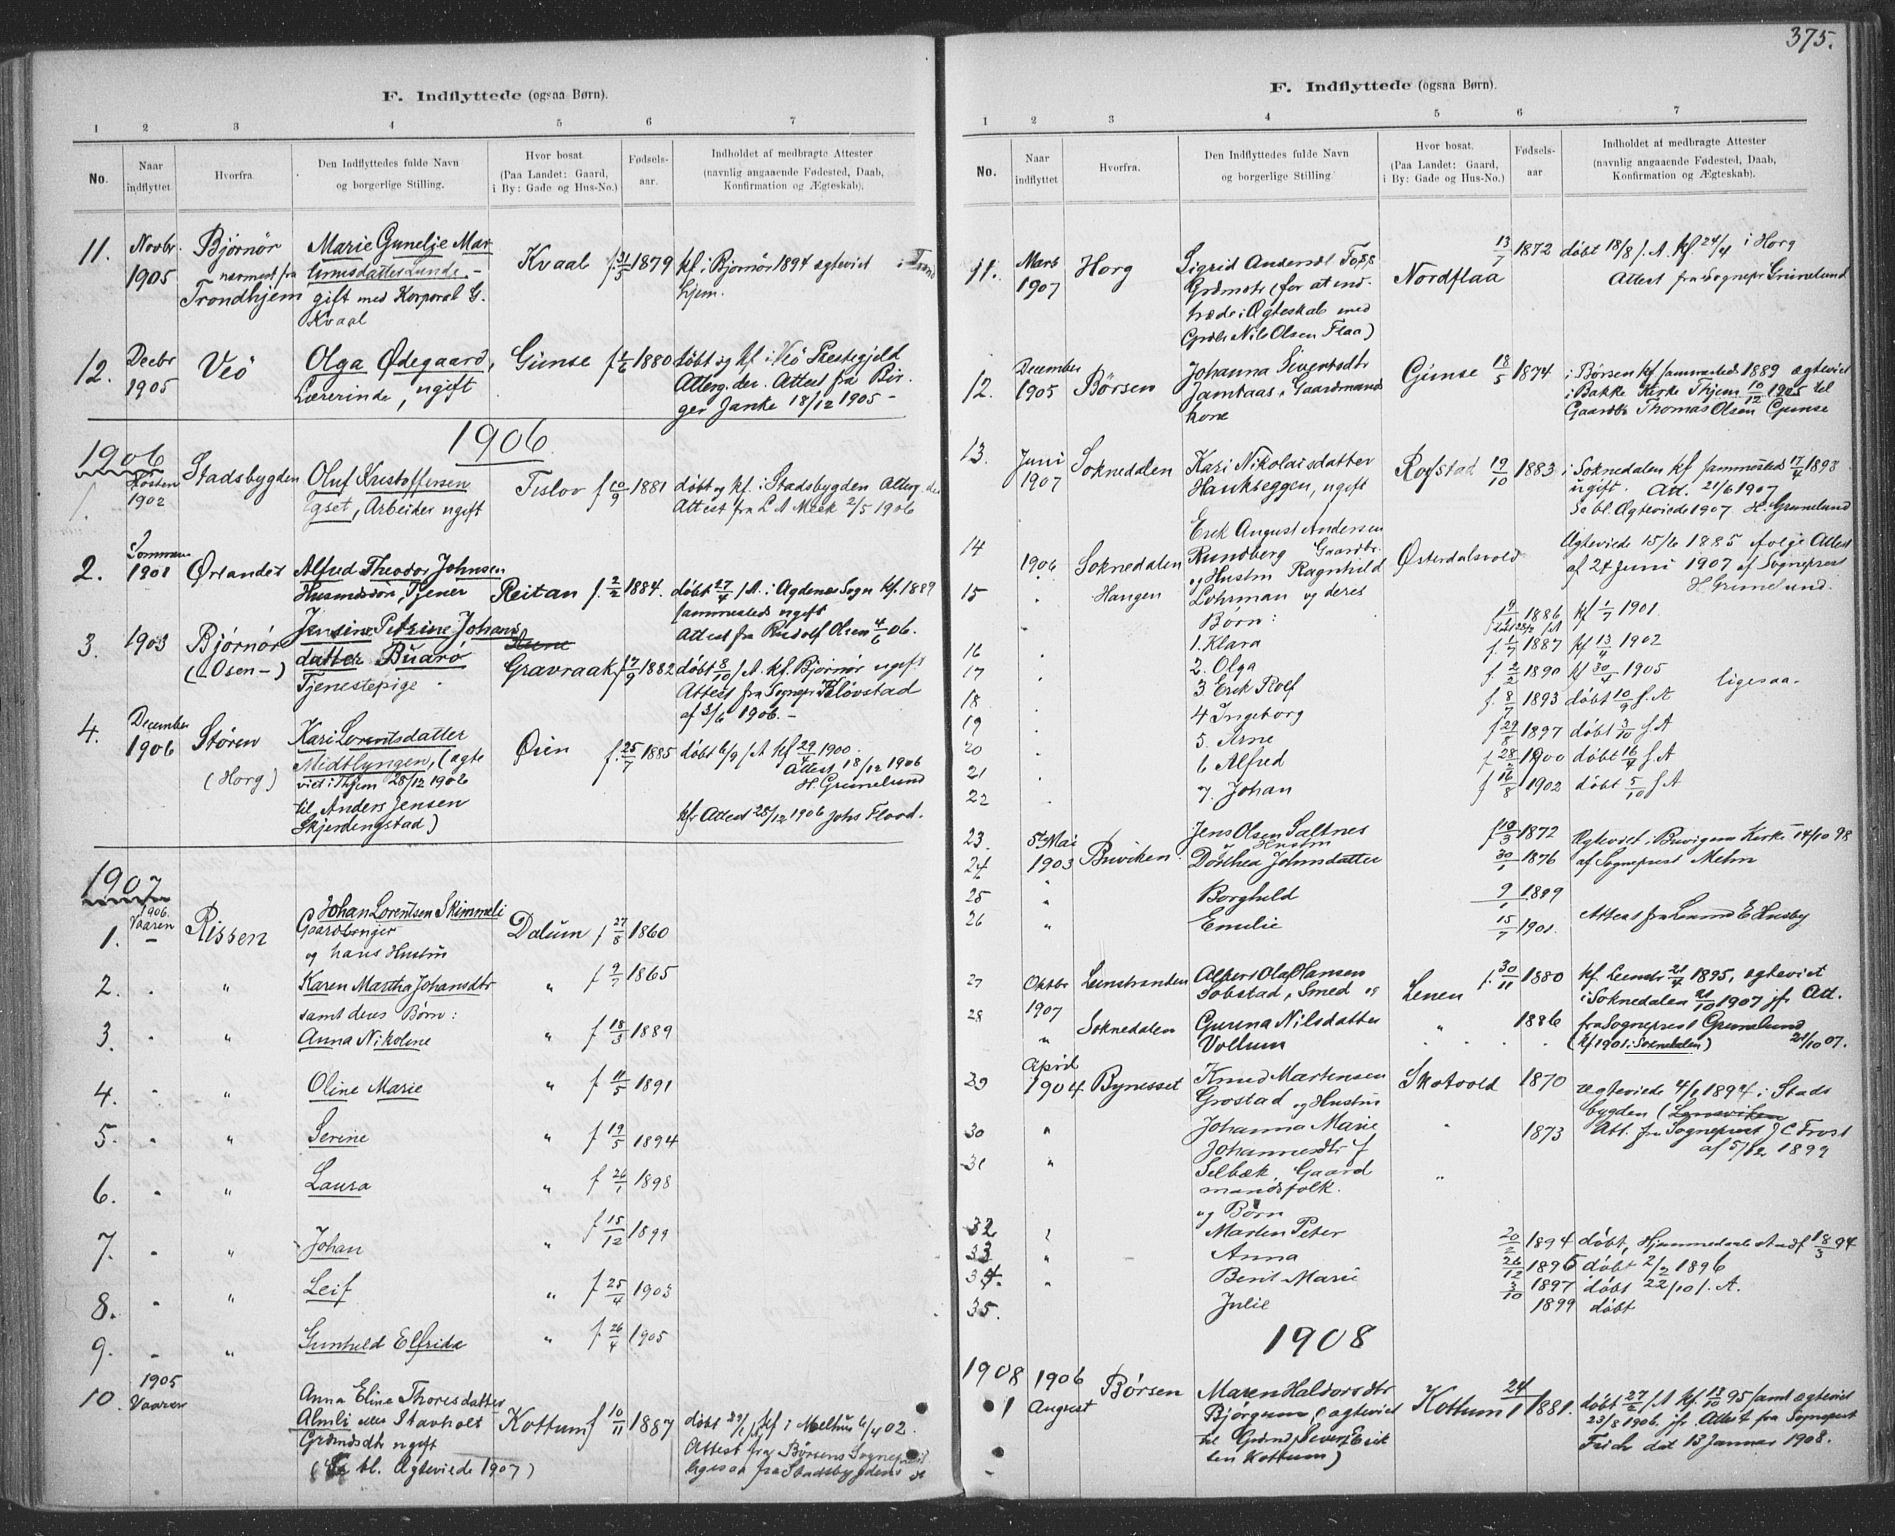 375.
F. Indflyttede (ogsaa Børn).
1 2 3 4 5 6 7
No.
Naar indflyttet
Hvorfra.
Den Indflyttedes fulde Navn og borgerlige Stilling.
Hvor bosat (Paa Landet: Gaard, i By: Gade og Hus-No.)
Fødsels-aar.
Indholdet af medbragte Attester (navnlig angaaende Fødested, Daab, Konfirmation og Ægteskab).
11. Novbr. Bjørnør Marie Gunelje Mar
1905 nærmest fra Kvaal f. 31/5 1879 kf. i Bjørnør 1894 ægteviet i Trond
Trondhjem gift med Korporal G. hjem.
Kvaal
12. Decbr Veö Olga Ødegaard, Gimse f 2/6 1880 døbt og kf. i Veö Prestegjeld
1905 Lærerinde, ugift Atterg. der. Attest fra Bir
ger Janke 18/12 1905 -
1906
1906
Høsten Stadsbygden Oluf Kristoffersen Teslov f 10/9 1881 døbt og kf. i Stadsbygden Atterg. der
1902 Egset, Arbeider ugift Attest fra L A Meek 2/5 1906
Sommer
2. 1901 Ørlandet Alfred Theodor Johnsen
Tjener Reitan f. 2/2 1884. døbt 27/4 f.A. i Agdenes Sogn kf. 1889
sammesteds ugift
Attest fra Rudolf Olsen 4/6 06.
3. 1903 Bjørnør Jensine Petrine Johans
(Osen-) datter Buarö Gravraak f 7/9 1882 døbt 8/10 f.A. kf. Bjørnør ugift
Tjenestepige. Attest fra Sognepr. Kløvstad
af 3/6 1906. -
4. December Støren Kari Lorentsdatter Øien f. 25/7 1885 døbt 6/9 f.A kf 29/4 1900.
1906 Midtlyngen, (ægte Attest 18/12 1906
(Horg) viet i Thjem 28/12 1906 H. Grimelund
til Anders Jensen
Skjerdingstad) kfr. Attest 28/12 1906 Johs Flood.
1907
1906.
1. Vaaren Rissen Johan Lorentsen Skimmeli Dalum f 27/8 1860
Gaardbruger
og hans Hustru
2. " Karen Martha Johansdtr " f 9/7 1865
samt deres Børn:
3. " Anna Nikoline " f 18/3 1889
4. " Oline Marie " f 11/5 1891
5. " Serine " f 19/5 1894
6. " Laura " f 26/1 1898
7. " Johan " f 15/12 1899
8. " Leif " f 25/4 1903
9. " Gunhild Elfrida " f. 26/4 1905
1905
10. Vaaren Anna Eline Thoresdatter
Almli eller Stavholt Kottum f 10/11 1887 døbt 29/1 kf i Melhus 6/4 02.
Grdmdsdtr ugift Attest fra Børsens Sognepr
(Se bl. Ægteviede 1907) ligesaa fra Stadsbygdens
F. Indflyttede (ogsaa Børn).
1 2 3 4 5 6 7
No.
Naar indflyttet
Hvorfra.
Den Indflyttedes fulde Navn og borgerlige Stilling.
Hvor bosat. (Paa Landet: Gaard, i By: Gade og Hus-No.)
Fødsels-aar.
Indholdet af medbragte Attester (navnlig angaaende Fødested, Daab, Konfirmation og Ægteskab).
11. Marts Horg Sigrid Andersdtr Foss 13/7 1872 døbt 18/8 f.A. kf. 24/4 i Horg
1907 Grdmdtr (for at ind Nordflaa Attest fra Sognepr Grimelund
træde i Ægteskab med
Grdbr Nils Olsen Flaa)
12. December Børsen Johanna Sivertsdtr Gimse 18/5 1874 i Børsen kf. sammesteds 1889 ægteviet
1905 Jamtaas, Gaardmands i Bakke Kirke Thjem 10/12 1905 til
kone Gaardbr Thomas Olsen Gimse
13. Juni Soknedalen Kari Nikolaisdatter Rofstad 19/10 1883 i Soknedalen kf sammesteds 17/4 1898
1907 Haukseggen, ugift ugift. Att. 21/6 1907
Se bl. Ægteviede 1907 H. Grimelund
14 1906 Soknedalen Erik August Andersen
Rundberg Gaardbr. Østerdalsvold Ægteviede 15/6 1885 ifølge Attest
og Hustru Ragnhild af 24 Juni 1907 af Sogneprest
15 Haugen Lohrman og deres H. Grimelund.
Børn:
16 1. Klara f 9/7 1886 kf 1/7 1901.
17 2. Olga f. 1/7 1887 kf 13/4 1902
18 3 Erik Rolf f. 2/2 1890 kf 30/4 1905
19 4 Ingeborg f. 8/7 1893 døbt 10/9 f.A ligesaa.
20 5. Arne f 29/8 1897 døbt 3/10 f.A
21 6 Alfred f 28/2 1900 døbt 16/4 f.A
22 7. Johan f 16/8 1902 døbt 5/10 f.A
23. 5te Mai Buviken Jens Olsen Saltnes f 19/3 1872 Ægteviet i Buvigens Kirke 14/10 98
24 1903 Hustru Dorthea Johnsdatter 30/1 1876 af Sogneprest Mehn
25 " Borghild 9/1 1899
26 " Emilie 15/7 1901. Attest fra Lensmd E Husby
27 Oktbr Leinstranden Albert Olaf Hansen Lenen f. 30/11 1880 kf. Leinstr 21/4 1895, ægteviet
1907 Sobstad, Smed og i Soknedalen 21/10 1907 jfr Att.
28 " Soknedalen Gurina Nilsdatter " 1886 fra Sogneprest Grimelund
Vollum (kf 1901 i Soknedalen) 21/10 07.
29 April Bynesset Knud Martensen Skotvold 1870 Ægteviede 4/1 1894 i Stads
1904 Grostad og Hustru bygden (Lensviken
30 " Johanna Marie 1873 Att. fra Sogneprest J C Frost
31 " Johannesdtr f af 5/12 1899
Selbæk, Gaard
mandsfolk.
og Børn
32 Marten Peter 20/2 1894 døbt, Hjemmedaab stadf 18/3 94
33 " Anna 26/12 1895 døbt 2/2 1896
34. " Berit Marie 3/10 1897 døbt 22/10 f. A.
35. Julie 1899 døbt
1908
1908 1906 Børsen Maren Haldorsdtr Kottum 24/1 1881. døbt 27/2 f.A kf. 13/10 95 samt ægteviet
1 August Bjørgum, (ægteviet 23/8 1906. jfr. Attest fra Sogneprest
til Grdmd Sivert Erik Frich dat 13 Januar 1908.
sen Kottum)